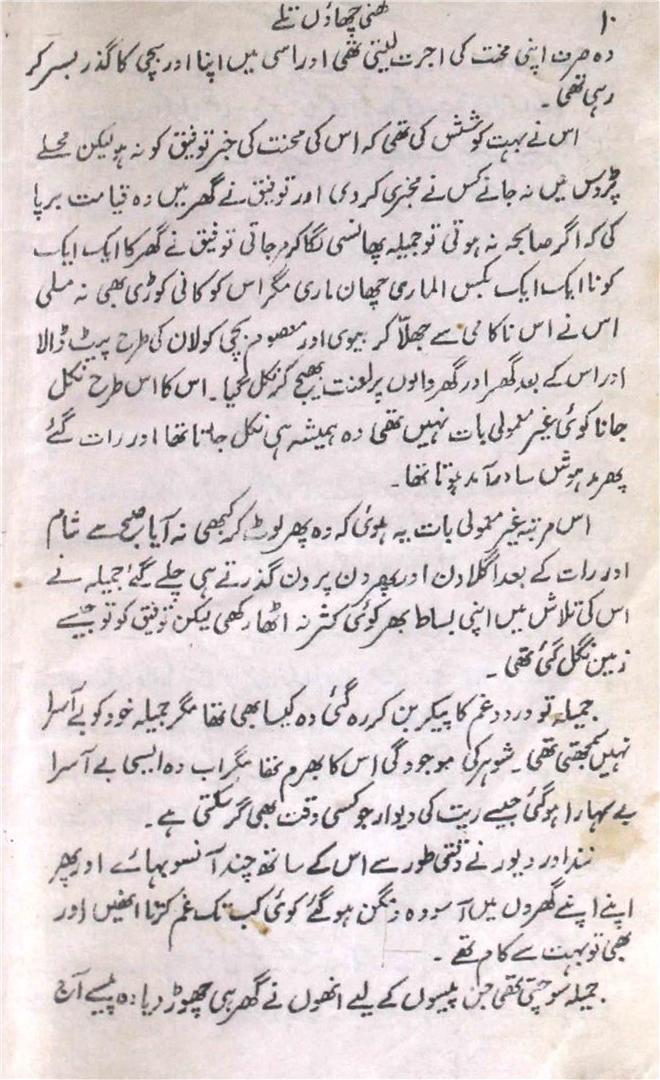 ۱۰ گھنی چھاؤں تلے
وہ صرف اپنی محنت کی اجرت لیتی تھی اور اسی میں اپنا اور بچی کا گذر بسر کر
رہی تھی۔
اس نے بہت کوشش کی تھی کہ اس کی محنت کی خبر توفیق کو نہ ہو لیکن محلے
پڑوس میں نہ جانے کس نے مخبری کردی اور توفیق نے گھر میں وہ قیامت برپا
کی کہ اگر صابحہ نہ ہوتی تو جمیلہ پھانسی لگا کر مر جاتی توفیق نے گھر کا ایک ایک
کونا ایک ایک بکس الماری چھان ماری مگر اس کو کانی کوڑی بھی نہ ملی
اس نے اس ناکامی سے جھلّا کر بیوی اور معصوم بچی کو لان کی طرح پیٹ ڈالا
اور اس کے بعد گھر اور گھر والوں پر لعنت بھیج کر نکل گیا۔ اس کا اس طرح نکل
جانا کوئی غیر معمولی بات نہیں تھی وہ ہمیشہ ہی نکل جاتا تھا اور رات گئے
پھر مدہوش سا درآمد ہوتا تھا۔
اس مرتبہ غیر معمولی بات یہ ہوئی کہ وہ پھر لوٹ کر کبھی نہ آیا صبح سے شام
اور رات کے بعد اگلا دن اور پھر دن پر دن گذرتے ہی چلے گئے جمیلہ نے
اس کی تلاش میں اپنی بساط بھر کوئی کثر نہ اٹھا رکھی لیکن توفیق کو تو جیسے
زمین نگل گئی تھی۔
جمیلہ تو درد و غم کا پیکر بن کر رہ گئی وہ کیسا بھی تھا مگر جمیلہ خود کو بے آسرا
نہیں سمجھتی تھی۔ شوہر کی موجودگی اس کا بھرم تھا مگر اب وہ ایسی بے آسرا
بے سہارا ہوگئی جیسے ریت کی دیوار جو کسی وقت بھی گر سکتی ہے۔
نند اور دیور نے وقتی طور سے اس کے ساتھ چند آنسو بہائے اور پھر
اپنے اپنے گھروں میں آسودہ و مگن ہوگئے کوئی کب تک غم کرتا انھیں اور
بھی تو بہت سے کام تھے۔
جمیلہ سوچتی تھی جن پیسوں کے لیے انھوں نے گھر ہی چھوڑ دیا وہ پیسے آج